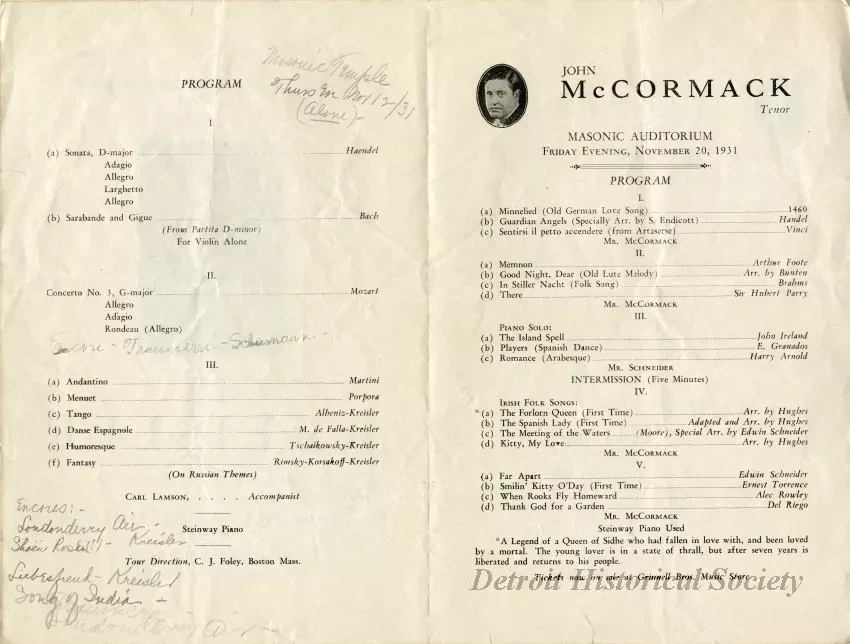 PROGRAM
Masonic Temple
Thurs Eve Nov 12/31
(Alone)-
I.
(a) Sonata, D-major Haendel
Adagio
Allegro
Larghetto
Allegro
(b) Sarabande and Gigue Bach
(From Partita D-minor)
For Violin Alone
II.
Concerto No. 3, G-major Mozart
Allegro
Adagio
Rondeau (Allegro)
Encore - Traumerei - Schumann -
III.
(a) Andantino Martini
(b) Menuet Porpora
(c) Tango Albeniz-Kreisler
(d) Danse Espagnole M. de Falla-Kreisler
(e) Humoresque Tschaikowsky-Kreisler
(f) Fantasy Rimsky-Korsakoff-Kreisler
(On Russian Themes)
CARL LAMSON, . . . . Accompanist
Encores:-
Londonderry Air -
Steinway Piano
Rosen(?)- Kreisler
Tour Direction, C. J. FOLEY, BOSTON, MASS.
Liebesfreud - Kreisler
Song of India -
JOHN
McCORMACK
Tenor
MASONIC AUDITORIUM
FRIDAY EVENING, NOVEMBER 20, 1931
PROGRAM
I.
(a) Minnelied (Old German Love Song) 1460
(b) Guardian Angels (Specially Arr. by S. Endicott) Handel
(c) Sentirsi il petto accendere (from Artaserse) Vinci
MR. McCORMACK
II.
(a) Memnon Arthur Foote
(b) Good Night, Dear (Old Lute Melody) Arr. by Bunten
(c) In Stiller Nacht (Folk Song) Brahms
(d) There Sir Hubert Parry
MR. McCORMACK
III.
PIANO SOLO:
(a) The Island Spell John Ireland
(b) Players (Spanish Dance) E. Granados
(c) Romance (Arabesque) Harry Arnold
MR. SCHNEIDER
INTERMISSION (Five Minutes)
IV.
IRISH FOLK SONGS:
*(a) The Forlorn Queen (First Time) Arr. by Hughes
(b) The Spanish Lady (First Time) Adapted and Arr. by Hughes
(c) The Meeting of the Waters (Moore), Special Arr. by Edwin Schneider
(d) Kitty, My Love Arr. by Hughes
MR. McCORMACK
V.
(a) Far Apart Edwin Schneider
(b) Smilin' Kitty O'Day (First Time) Ernest Torrence
(c) When Rooks Fly Homeward Alec Rowley
(d) Thank God for a Garden Del Riego
MR. McCORMACK
Steinway Piano Used
*A Legend of a Queen of Sidhe who had fallen in love with, and been loved
by a mortal. The young lover is in a state of thrall, but after seven years is
liberated and returns to his people.
Tickets now on sale at Grinnell Bros. Music Store
Detroit Historical Society